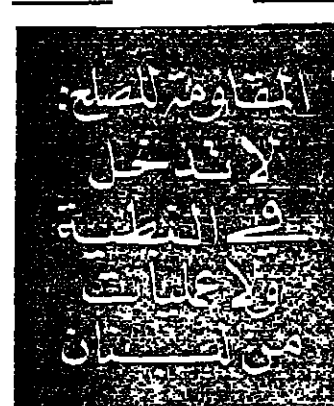 المقاومة للصلح:
لا تدخل
في النبطية
ولا عمليات
من لبنان